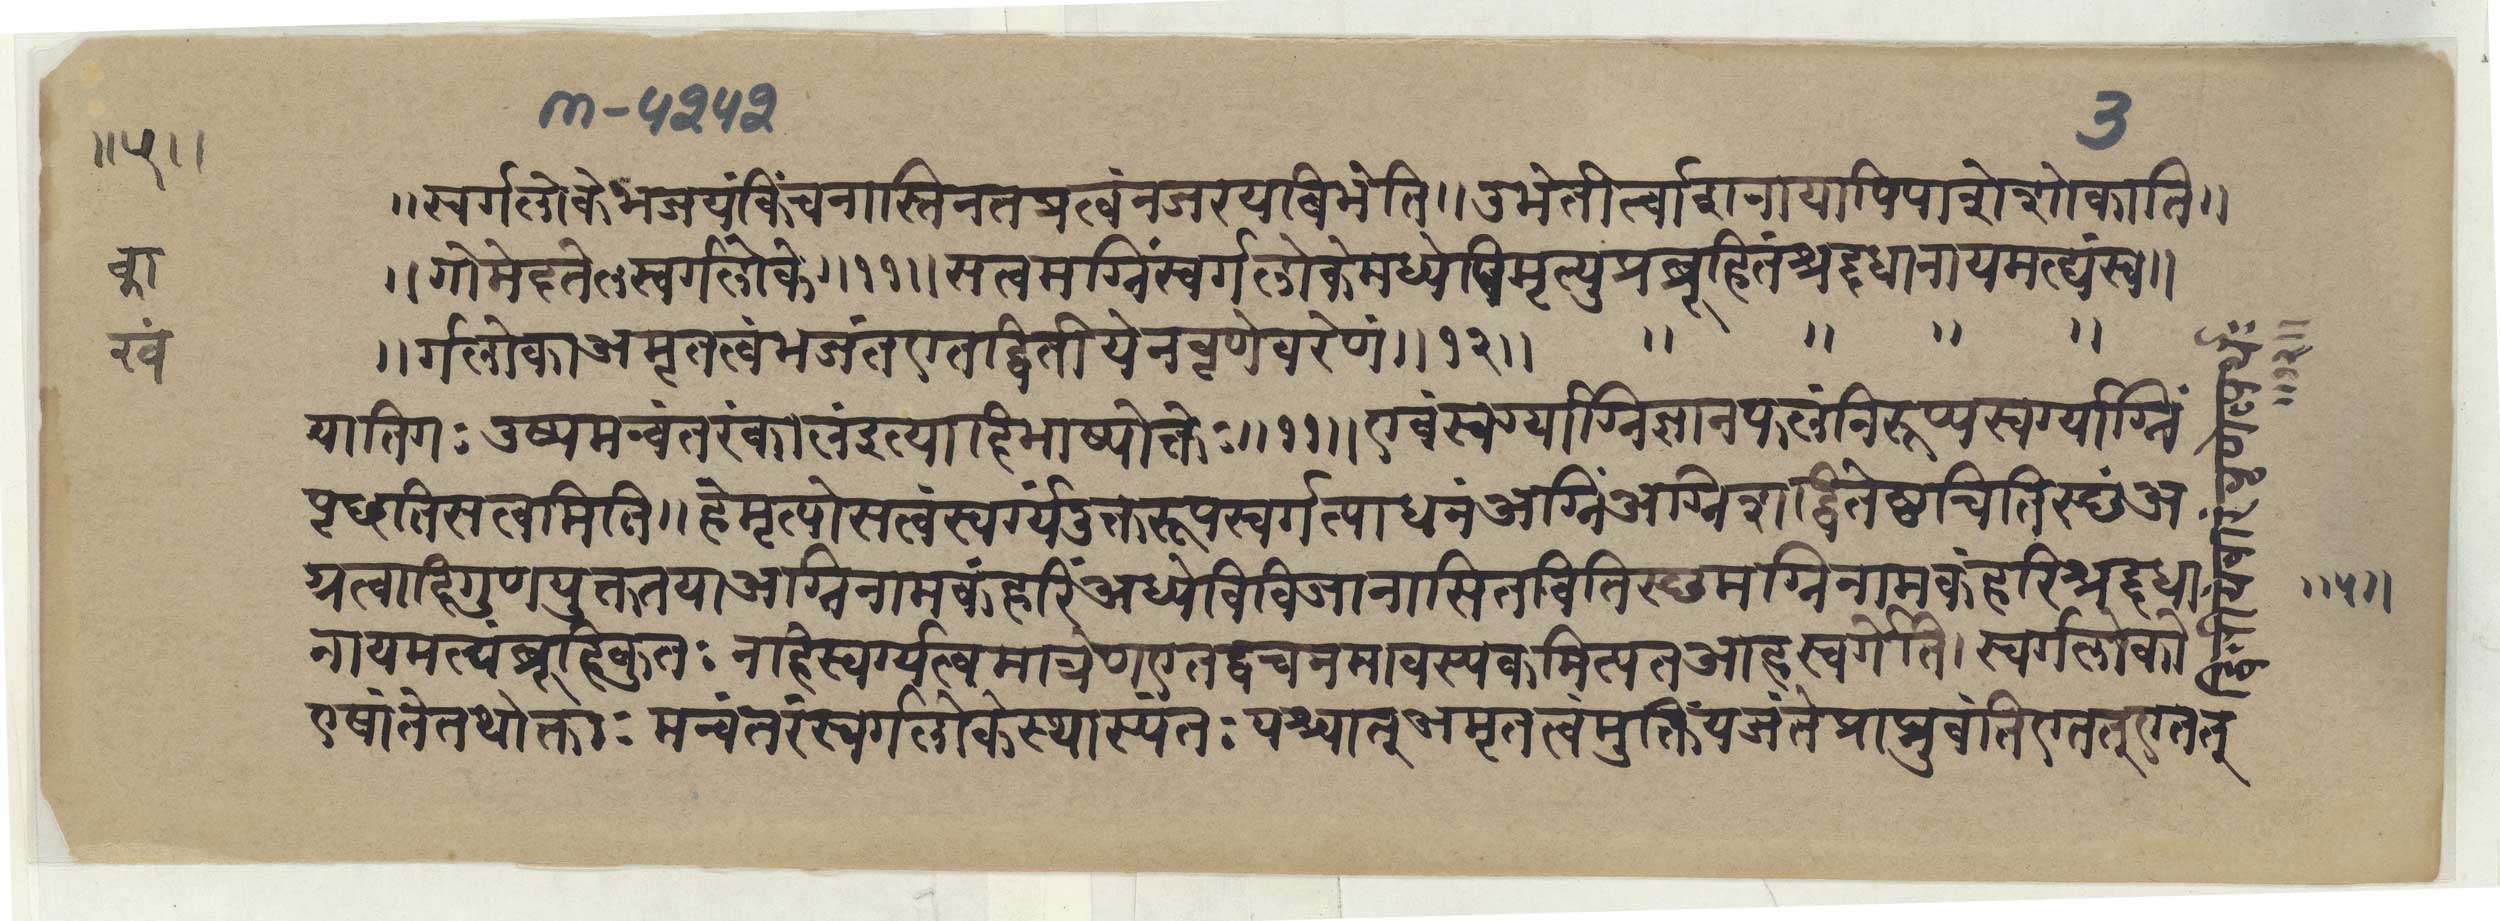 m-५२५२
3
॥५॥
का
खं
॥स्वर्गलोकेभजयंकिंचनास्तिनतत्रत्वंनजरयबिभेति॥उभेतीर्त्वाशनायापिपाशेशोकाति॥
॥गोमेदतेलस्वर्गलोके॥११॥सत्वमग्निंस्वर्गलोकेमध्येषिमृत्युप्रब्रूहितंश्रद्दधानायमत्द्यंस्व॥
॥र्गलोकाअमृतत्वंभजंतएतद्वितीयेनवृणेवरेणं॥१२॥ ॥ ॥ ॥ ॥
यातिगः उष्यमन्वंतरंकालंइत्यादिभाष्योक्तेः॥११॥एवंस्वर्ग्याग्निज्ञानफलंनिरूप्यस्वर्ग्याग्निं
पृछतिसत्वमिति॥हेमृत्योसत्वंस्वर्ग्यंउक्तरूपस्वर्गत्याधनंअग्निंअग्निशद्वितेष्टाचितिस्छंअ
ग्रत्वादिगुणयुक्ततयाअग्निनामकंहरिंअध्येविविजानासितवितिस्छमग्निनामकंहरिश्रद्दधा
नायमत्द्यंब्रूहिकुतः नहिस्वर्ग्यत्वमात्रेणएतद्वचनमावस्यकमित्यतआहस्वर्गेति।स्वर्गलोको
एषांतेतथोक्ताः मन्वंतरंस्वर्गलोकेस्थास्यंतः पश्चात्अमृतत्वंमुक्तिंयजंतेप्राप्नुवंतिएतत्एतत्
॥१२॥
॥५॥